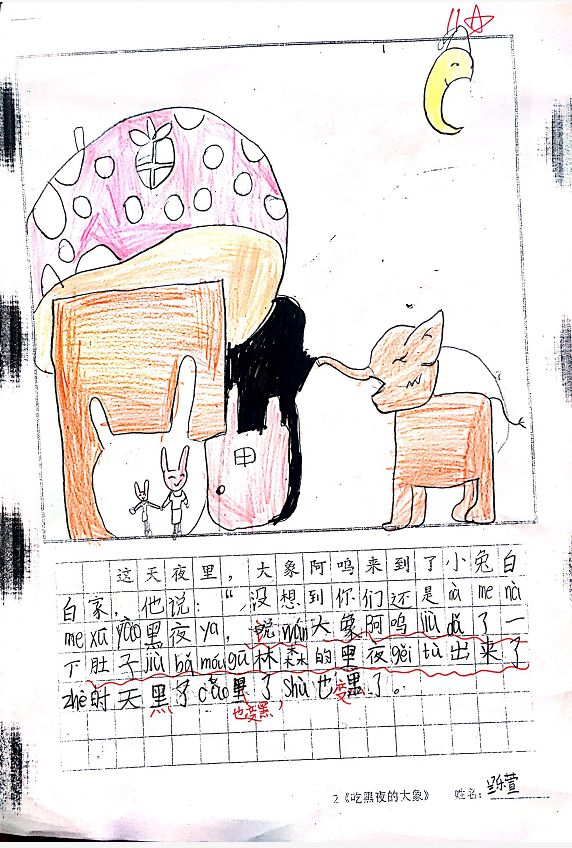 这天夜里，大象阿呜来到了小兔白
白家，他说：“，没想到你们还是nà me nà
me xū yào黑夜ya，说wán大象阿呜jiù dǎ了一
下肚子jiù bǎ móu gū林森的黑夜gěi tù出来了
zhè时天黑了cǎo黑了shù也黑了。
也变黑，
变
2《吃黑夜的大象》 姓名：乐萱